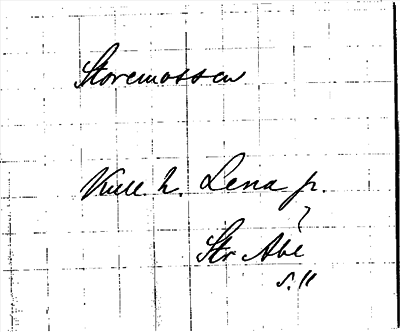 Storemossen
Kull h. Lena p.
Str Abl
s. 11